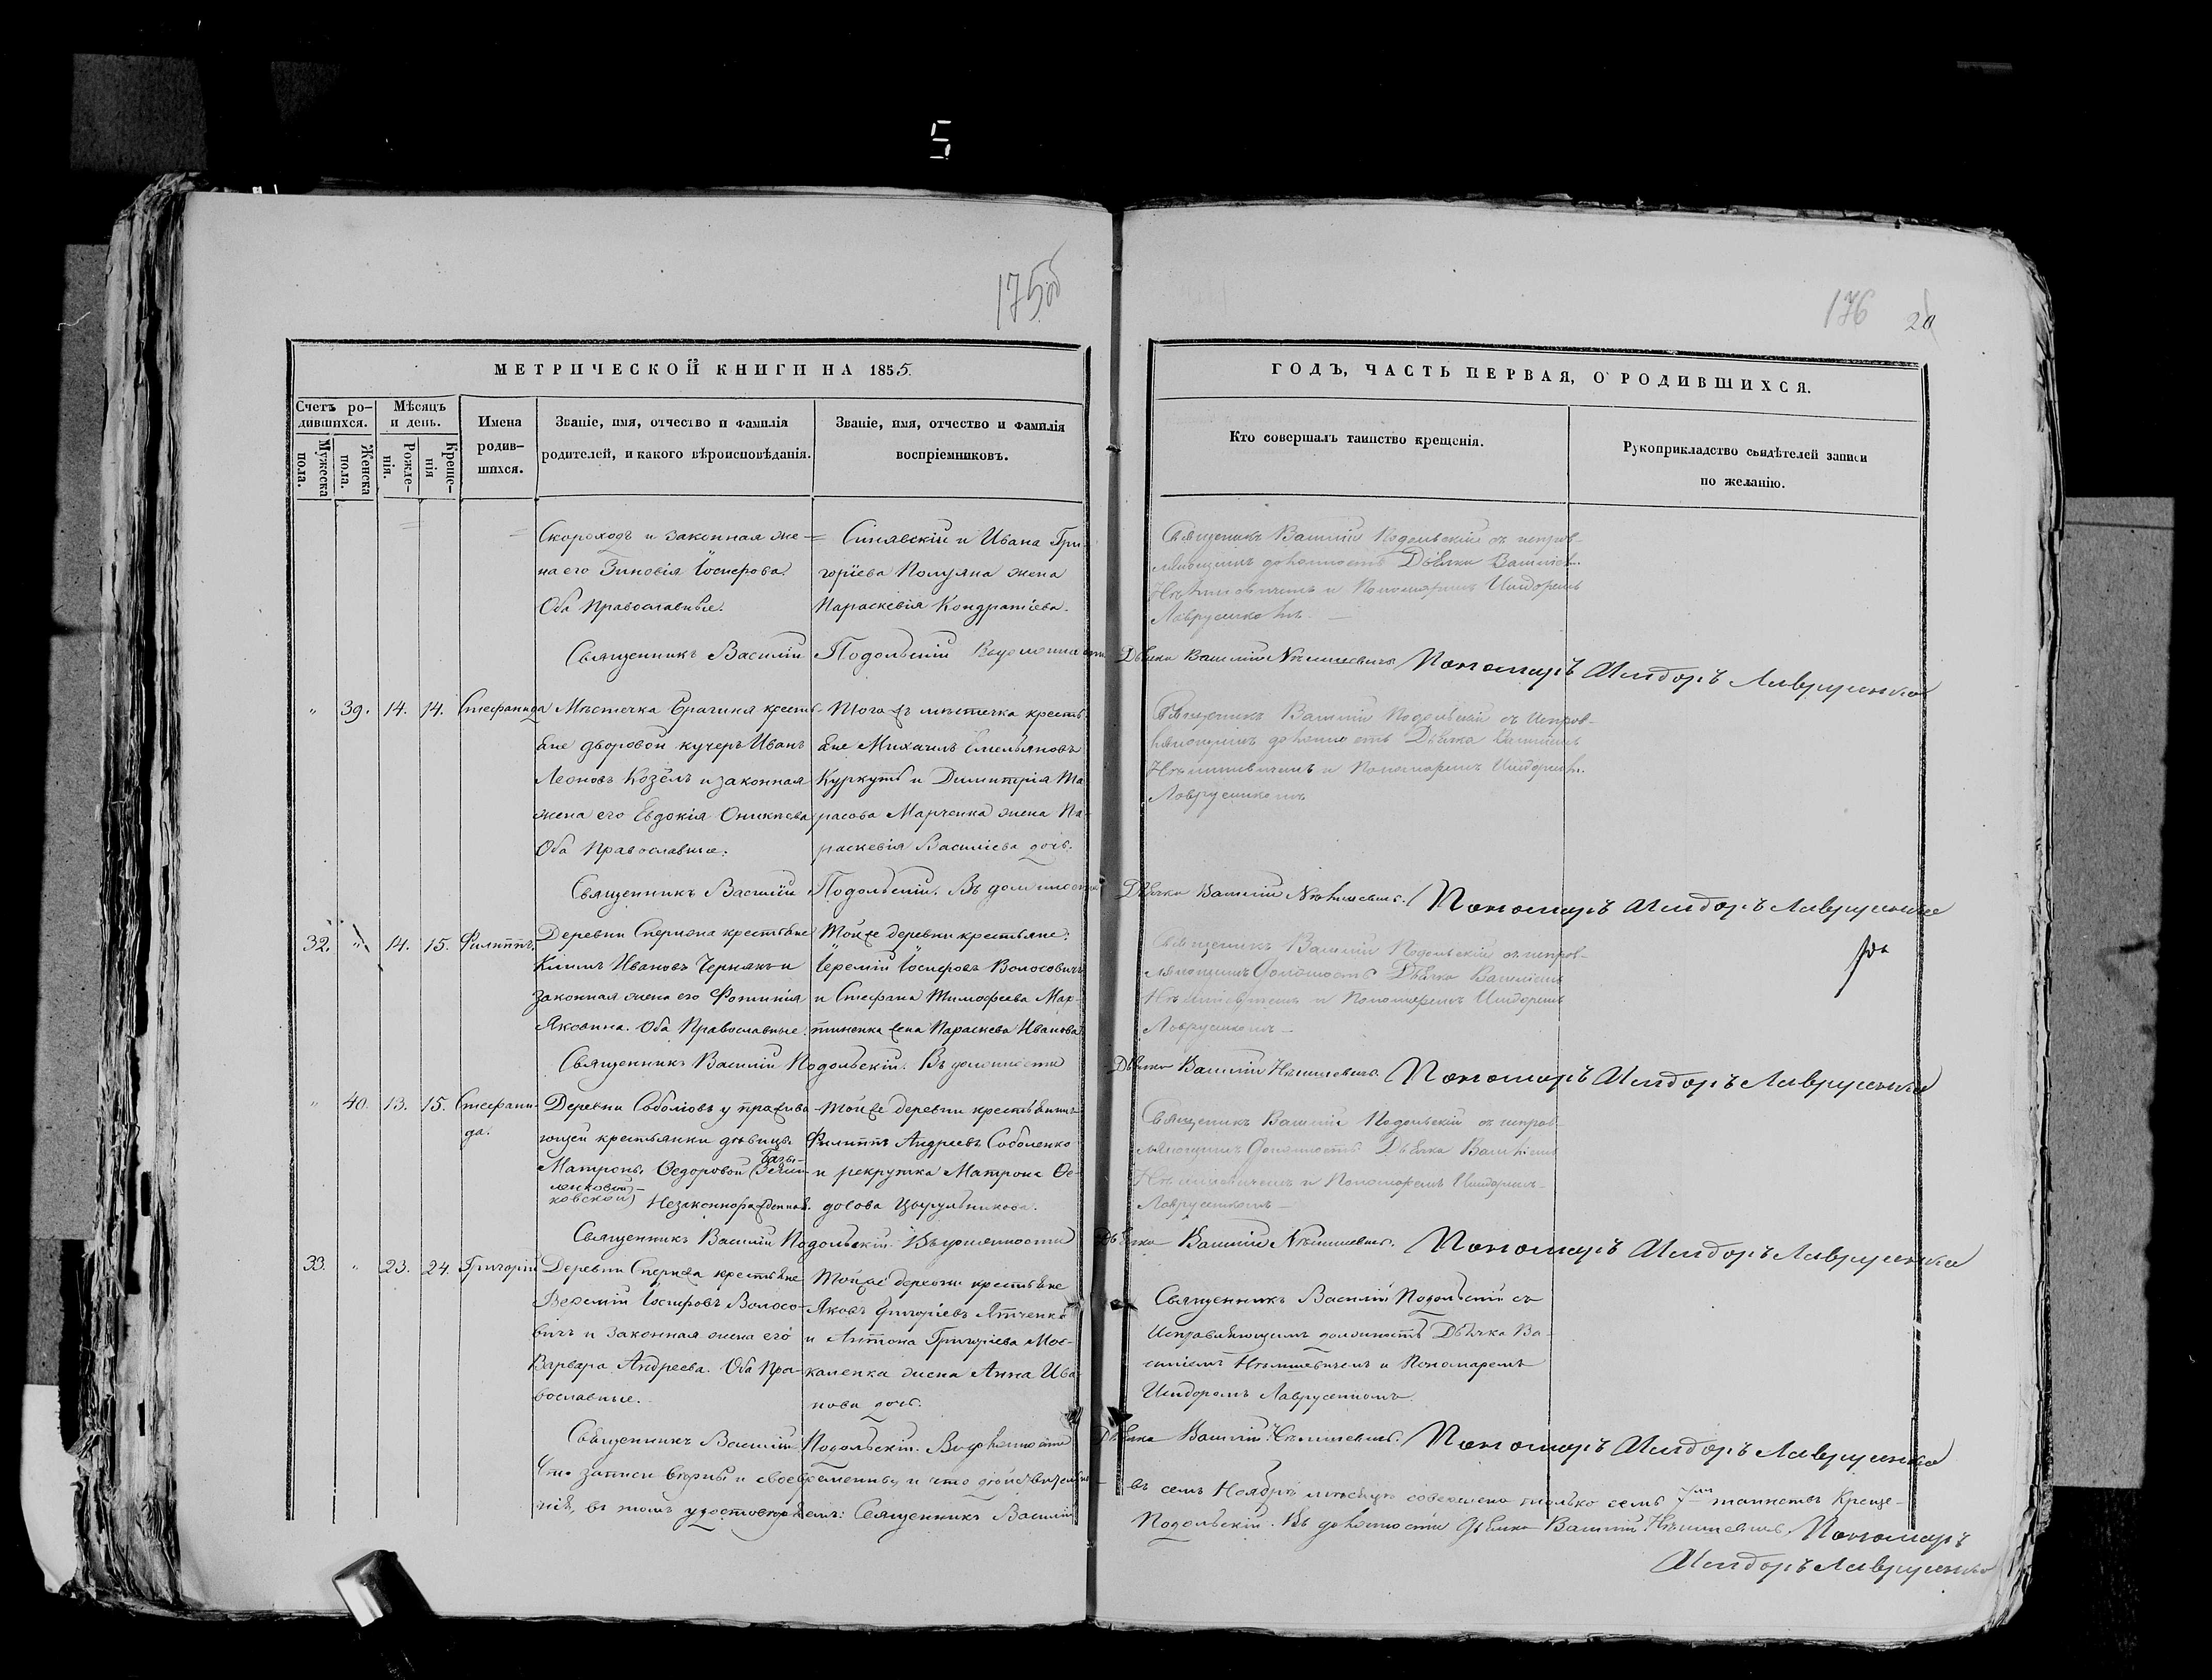 5
175об
176 20
МЕТРИЧЕСКОЙ КНИГИ НА 1855.
Счетъ ро-
дившихся.
Мужеска
пола.
Женска
пола.
Мѣсяцъ
и день.
Рожде-
нія.
Креще-
нія
Имена
родив-
шихся.
Званіе, имя, отчество и фамилія
родителей, и какого вѣроисповѣданія.
Званіе, имя, отчество и фамилія
воспріемниковъ.
ГОДЪ, ЧАСТЬ ПЕРВАЯ, О РОДИВШИХСЯ.
Кто совершалъ таинство крещенія.
Рукоприкладство свидѣтелей записи
по желанію.
Скороходъ и законная же-
на его Зиновія Іосифова.
Оба Православные.
Синявскій и Ивана Гри-
горіева Полуяна жена
Параскевія Кондратіева.
Священникъ Василій Подольскій съ исправ-
ляющимъ должность Дьячка Василіем
Нѣмшевичемъ и Пономаремъ Исидоромъ
Лаврусикомъ.
Священникъ Василій Подольскій В должности Дьячка Василій Нѣмшевичъ Пономарь Исидоръ Лаврусенко
" 39. 14. 14. Стефанида
Мѣстечка Брагина кресть-
яне дворовой кучеръ Иванъ
Леоновъ Козёлъ и законная
жена его Евдокія Оникіева
Оба Православные.
Того жъ мѣстечка кресть-
яне Михаилъ Емельяновъ
Куркутъ и Димитрія Та-
расова Марченка жена Па-
раскевія Василіева дочь.
Священникъ Василій Подольскій съ исправ-
ляющимъ должность Дьячка Василіемъ
Нѣмшевичемъ и Пономаремъ Исидоромъ
Лаврусикомъ
Священникъ Василій Подольскій. Въ должности Дьячка Василій Нѣмшевичъ. Пономарь Исидоръ Лаврусенко
32. " 14. 15. Филиппъ.
Деревни Сперижа крестьяне
Климъ Ивановъ Чернякъ и
законная жена его Фотинія
Яковина. Оба Православные.
Той же деревни крестьяне:
Іеремій Іосифовъ Волосовичъ
и Стефана Тимофеева Мар-
тиненка жена Параскева Иванова
Священникъ Василій Подольскій съ исправ-
ляющимъ Должность Дьячка Василіемъ
Нѣмшевичемъ и Пономаремъ Исидоромъ
Лаврусикомъ
Священникъ Василій Подольскій. Въ должности Дьячка Василій Нѣмшевичъ. Пономарь Исидоръ Лаврусенко
" 40. 13. 15. Стефани-
да.
Деревни Соболіовъ у прожива-
ющей крестьянки дѣвицы
Матроны Ѳедоровой
Незаконнорожденная.
Той же деревни крестьянинъ
Филиппъ Андреевъ Соболенко
и рекрутка Матрона Ѳе-
досова Цырульникова.
Священникъ Василій Подольскій съ исправ-
ляющимъ Должность Дьячка Василіемъ
Нѣмшевичемъ и Пономаремъ Исидоромъ
Лаврусикомъ
Священникъ Василій Подольскій. Въ должности Дьячка Василій Нѣмшевичъ. Пономарь Исидоръ Лаврусенко
33. " 23. 24. Григорій
Деревни Спержа крестьяне
Іеремій Іосифовъ Волосо-
вичъ и законная жена его
Варвара Андреева. Оба Пра-
вославные.
Той же деревни крестьяне
Яковъ Григоріевъ Ятченко
и Антона Григоріева Мос-
каленка жена Анна Ива-
нова дочь.
Священникъ Василій Подольскій съ
Исправляющимъ должность Дьячка Ва-
силіемъ Нѣмшевичемъ и Пономаремъ
Исидоромъ Лаврусенкомъ.
Священникъ Василій Подольскій. В должности Дьячка Василій Нѣмшевичъ. Пономарь Исидоръ Лаврусенко
Что записи вѣрны и своевременны, и что дѣйствительно въ семъ Ноябрѣ мѣсяцѣ совершено только семь 7 таинствъ Креще-
нія, въ томъ удостовѣряемъ: Священникъ Василій Подольскій. Въ должности Дьячка Василій Нѣмшевичъ. Пономарь
Исидоръ Лаврусенко